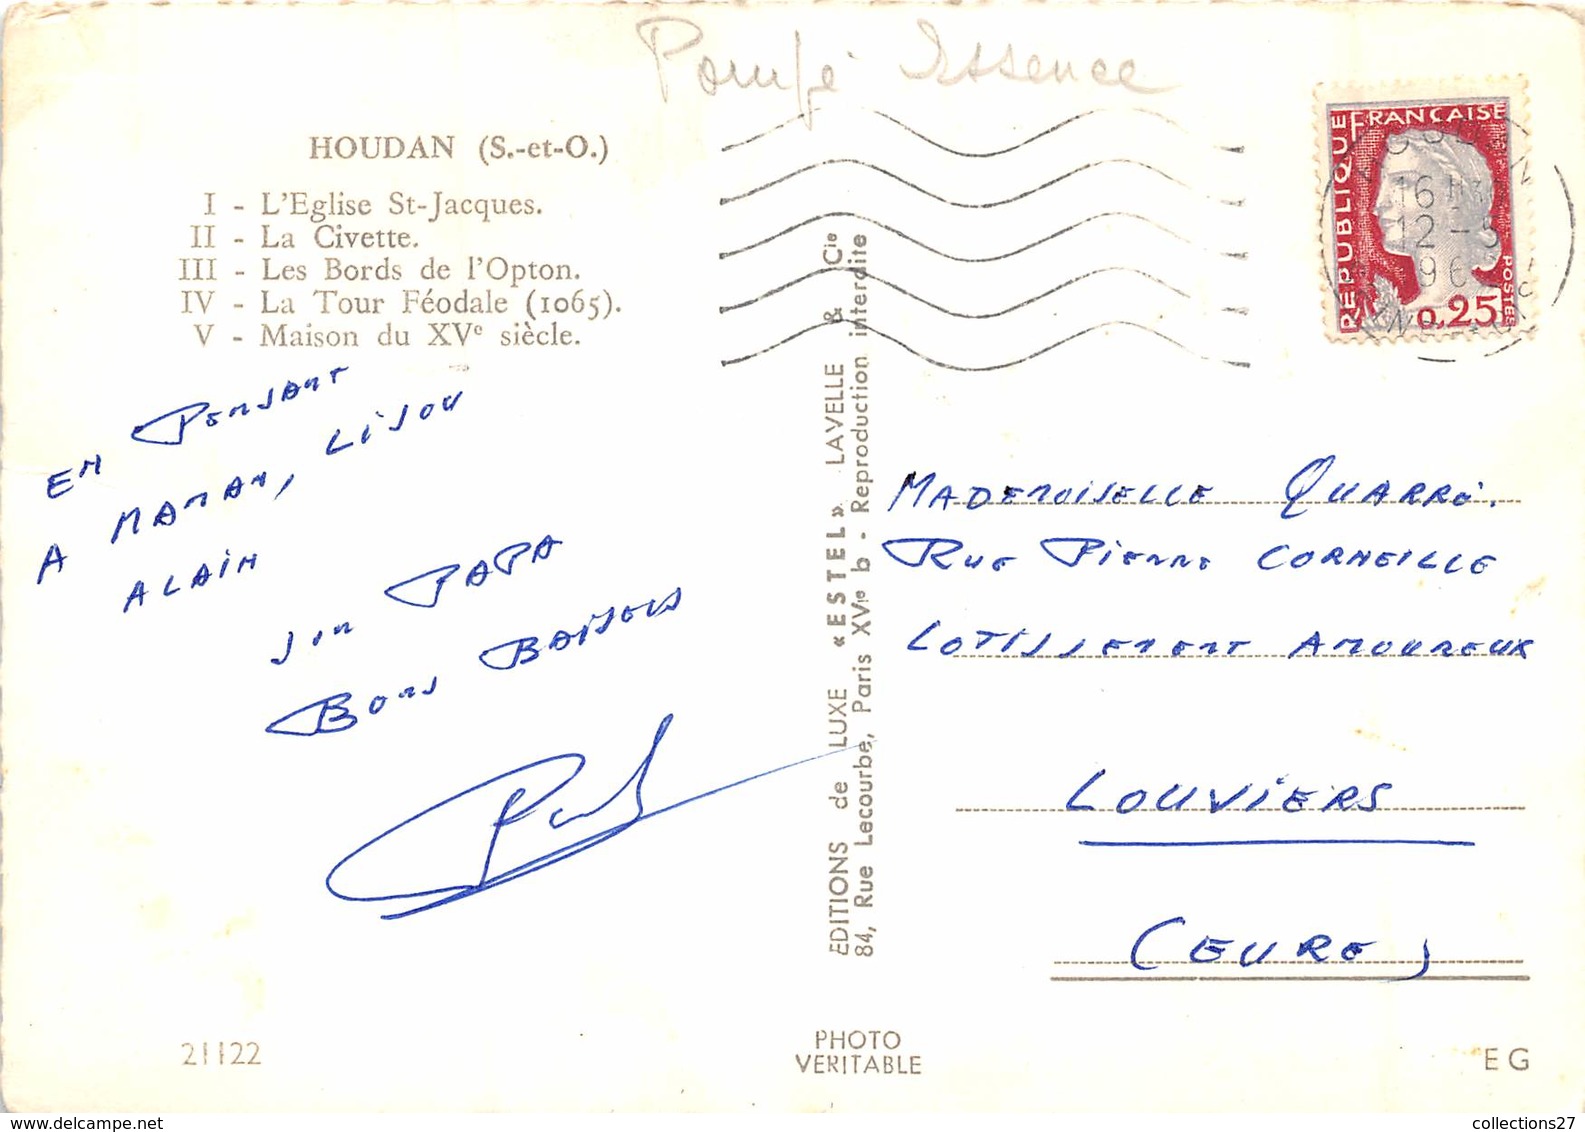 Pompe Essence
HOUDAN (S.-et-O.)
I - L'Eglise St-Jacques.
II - La Civette.
III - Les Bords de l'Opton.
IV - La Tour Féodale (1065).
V - Maison du XVe siècle.
EN PENSANT
A MAMAN, LISOU
ALAIN
SON PAPA
BONS BAISERS
Paul
EDITIONS de LUXE «ESTEL» LAVELLE & Cie
84, Rue Lecourbe, Paris XVe b - Reproduction interdite
REPUBLIQUE FRANÇAISE
POSTES
0,25
16 H30
12 - 5
MADEMOISELLE QUARRÉ.
RUE PIERRE CORNEILLE
LOTISSEMENT AMOUREUX
LOUVIERS
(EURE)
21122
PHOTO
VERITABLE
EG
collections27